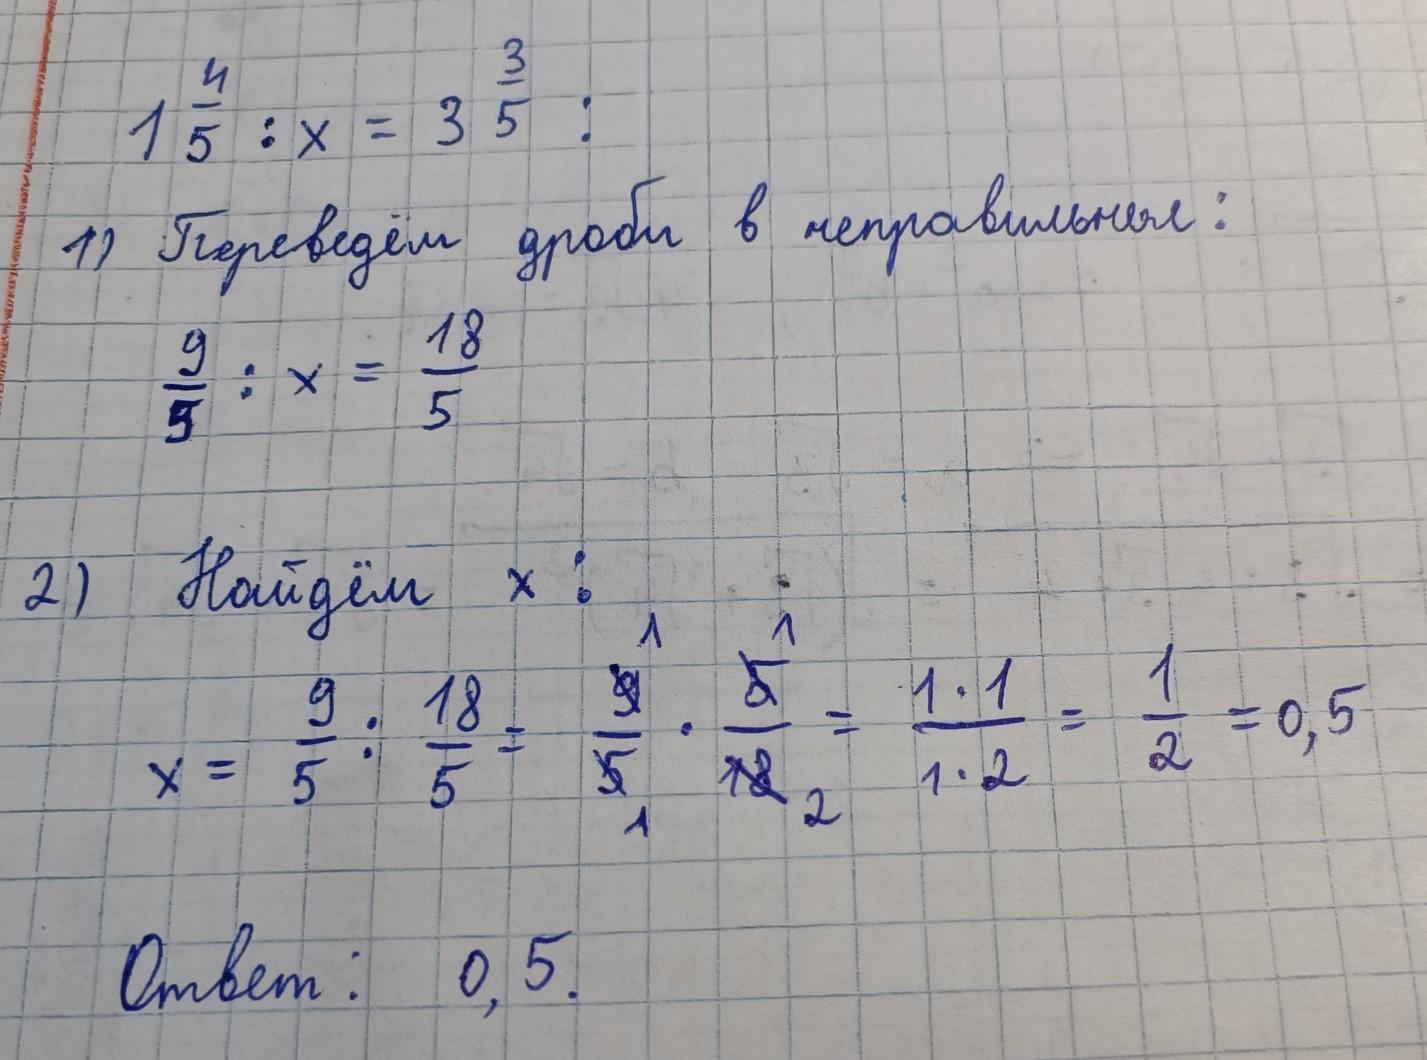 1 4/5 : x = 3 3/5 :
1) Переведём дроби в неправильные:
9/5 : x = 18/5
2) Найдём x:
x = 9/5 : 18/5 = 9/5 1 1 · 5/18 1 2 = 1·1/1·2 = 1/2 = 0,5
Ответ: 0,5.